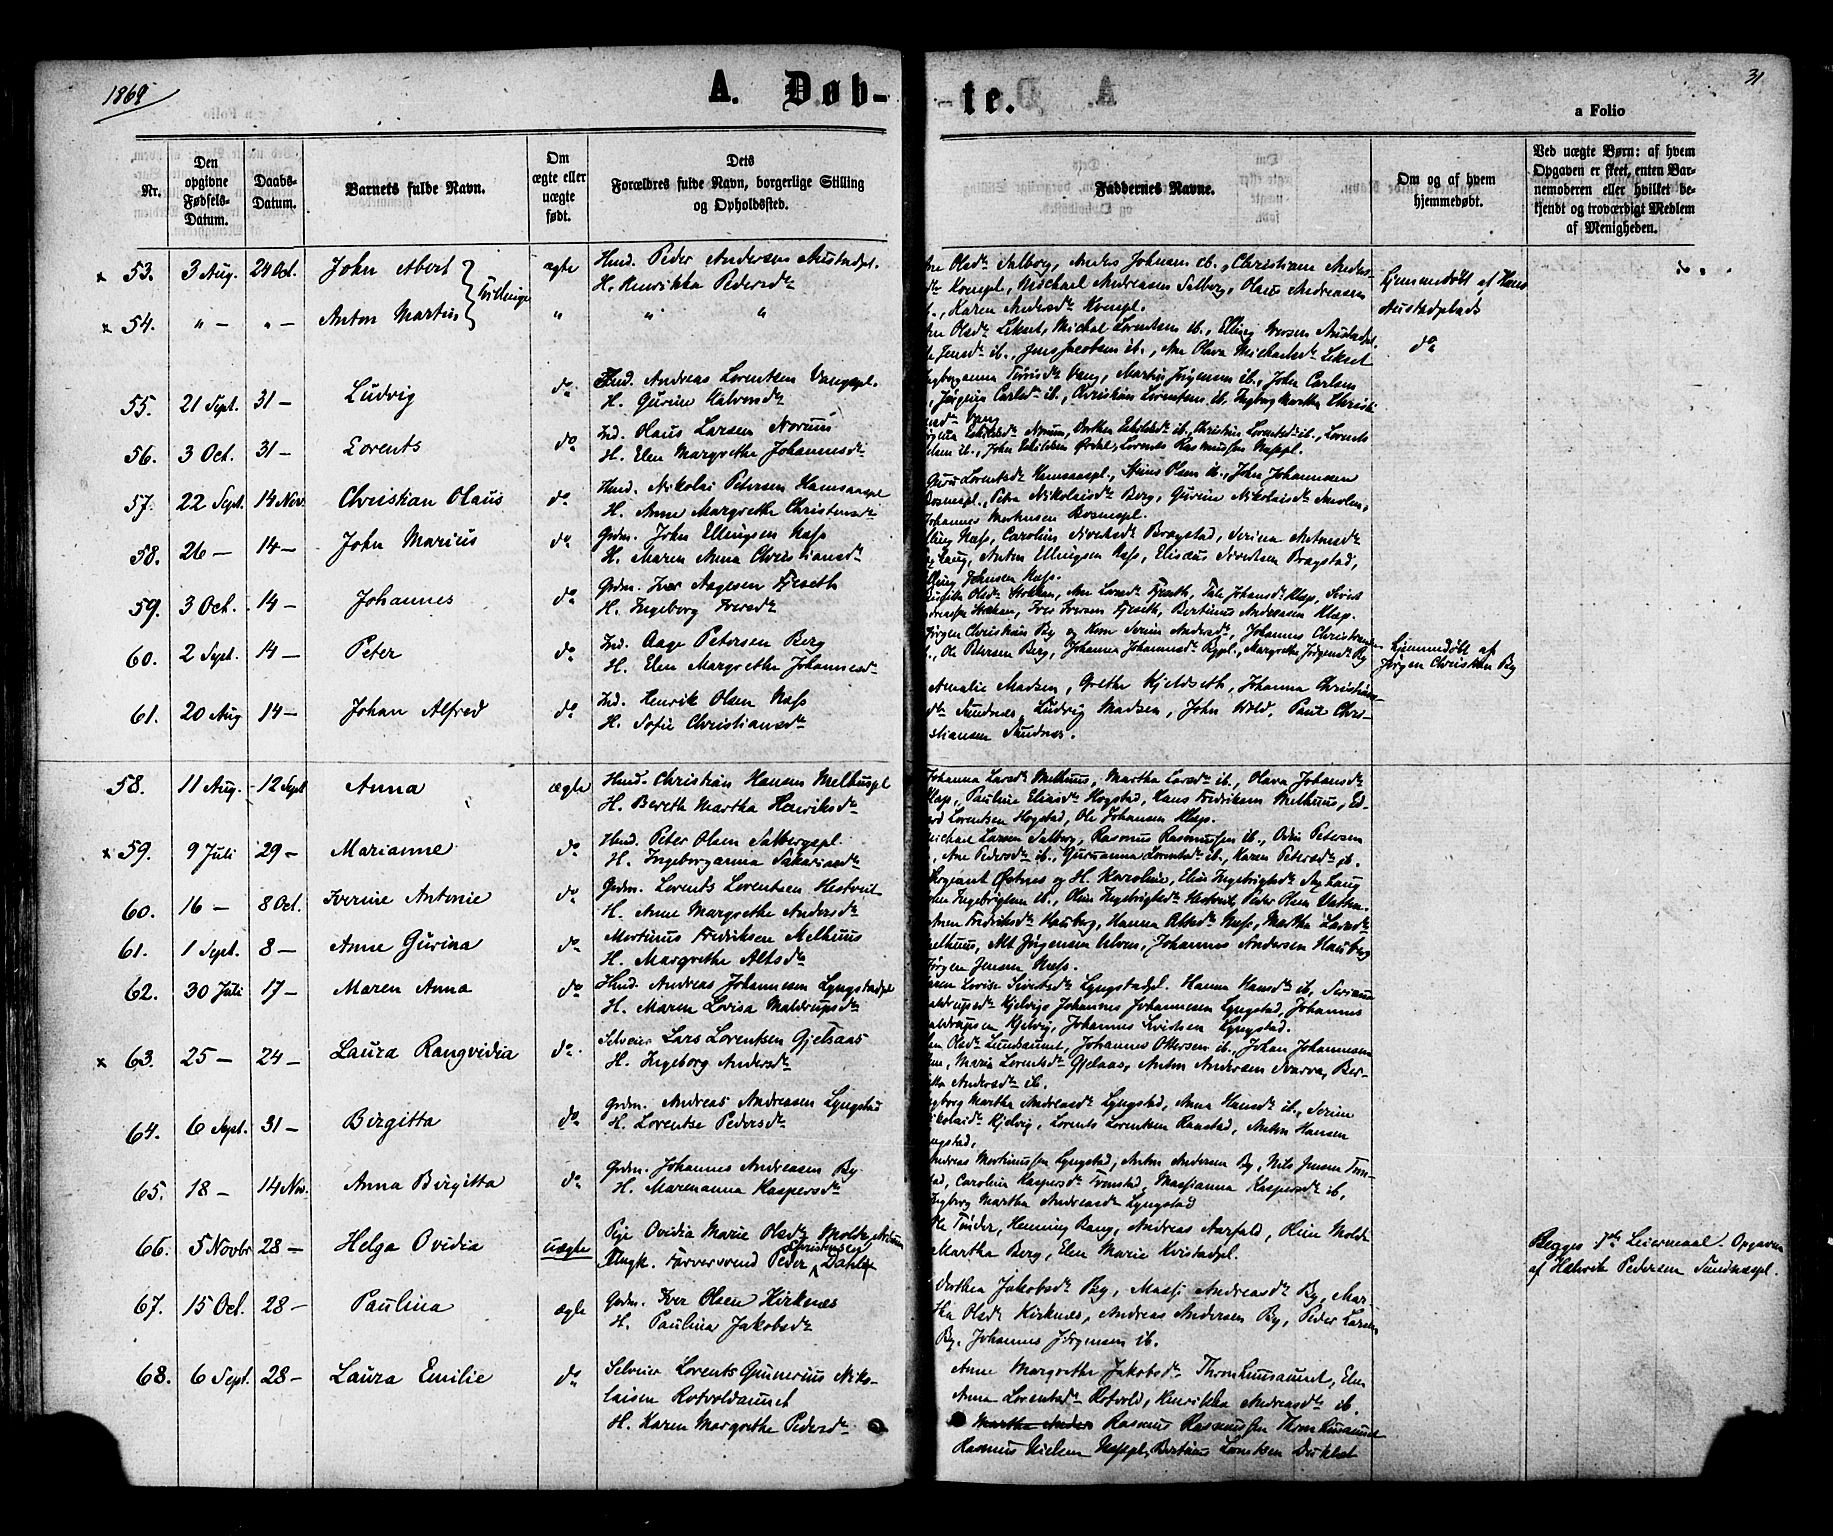 1869
A. Døb-
te.
31
a Folio
Nr.
Den opgivne Fødsels-Datum.
Daabs-Datum.
Barnets fulde Navn.
Om ægte eller uægte født.
Dets Forældres fulde Navn, borgerlige Stilling og Opholdssted.
Faddernes Navne.
Om og af hvem hjemmedøbt.
Ved uægte Børn: af hvem Opgaven er skeet, enten Barnemoderen eller hvilket bekjendt og troværdigt Medlem af Menigheden.
x 53. 3 Aug. 24 Oct. John Abert } Tvillinger ægte Hmd. Peder Andersen Austadpl.
H. Henrikka Pedersdr
x 54. " — " — Anton Martin " " "
Christiane Anders-
Kvempl., Michael Andreassen Salberg, Olaus Andreassen
Karen Andersdr Kvempl.
Hjemmedøbt af Hans
Austadplads
Olsdr Lekset, Michal Lorentsen ib., Elling Iversen Austadpl.
Jensdr ib., Jens Jacobsen ib., Ane Olava Michaelsdr Lekset
do
55. 21 Sept. 31 — Ludvig do Ind. Andreas Lorentsen Vangspl.
H. Gurine Halvorsdr
Vang, Martin Jørgensen ib., John Carlsen
Jørgina Carlsdr ib., Christian Lorentsen ib. Ingborg Martha Christi-
Vang
56. 3 Oct. 31 — Lorents do Ind. Olaus Larsen Norum
H. Elen Margrethe Johannesdr
Eskildsdr Norum, Dorthea Eskildsdr ib., Christine Lorentsdr ib., Lorents
ib., John Eskildsen Ardal, Lorents Rasmussen Næsspl.
57. 22 Sept. 14 Nov. Christian Olaus do Hmd. Nikolai Petersen Hamsaaspl
H. Anne Margrethe Christensdr
Guru Lorentsdr Hamsaaspl., Stine Olsen ib., John Johannesen
Bosnespl., Petra Nikolaisdr Berg, Gurine Nikolaisdr
Johannes Mortensen Bosnespl.
58. 26 — 14 — John Marius do Grdm. John Ellingsen Næss
H. Maren Anna Christiansdr
Elling Næss, Caroline Sivertsdr Bragstad, Serina Antonsdr
Laug, Anton Ellingsen Næss, Elisæus Sivertsen Bragstad,
Elling Johnsen Næss.
59. 3 Oct. 14 — Johannes do Grdm. Iver Aagesen Fjeseth
H. Ingeborg Iversdr
Olsdr Stokkan, Ane Larsdr Fjeseth, Tale Johansdr Klæp, Sivert
Andreassen Stokkan, Iver Iversen Fjeseth, Bertinus Andreassen Klæp.
60. 2 Sept. 14 — Peter do Ind. Aage Petersen Berg
H. Elen Margrethe Johannesd-
Jørgen Christian By og Kone Serine Andersdr, Johannes
Ole Petersen Berg, Johanna Johannesdr Bypl., Margrethe Jørgensdr By
Hjemmedøbt af
Jørgen Christian By
61. 20 Aug 14 — Johan Alfred do Ind. Henrik Olsen Næss
H. Sofie Christiansdr
Amalie Madsen, Grethe Kjeldseth, Johanna Christians-
dr Sundnæs, Ludvig Madsen, John Wold, Paul Chri-
stiansen Sundnæs.
58. 11 Aug. 12 Sept Anna ægte Hmd. Christian Hansen Melhuspl
H. Bereth Martha Henriksdr
Johanna Larsdr Melhuus, Martha Larsdr ib., Olava Johansdr
Klæp, Pauline Eliasdr Hogstad, Hans Fredriksen Melhuus, Ed-
vard Lorentsen Hogstad, Ole Johansen Klæp.
x 59. 9 Juli 29 — Marianne do Hmd. Peter Olsen Salbergspl.
H. Ingeboranna Sakariasdr
Michael Larsen Salberg, Rasmus Rasmussen ib., Odin Petersen
Ane Pedersdr ib., Guruanna Lorentsdr ib., Karen Petersdr ib.
60. 16 — 8 Oct. Iverine Antonie do Grdm. Lorents Lorentsen Hestveit
H. Anne Margrethe Andersdr
Sergeant Østnes og H. Karoline, Elise Ingebrigtsdr Laug
Ingebrigtsen ib., Oline Ingebrigtsdr Hestveit, Peder Olsen
61. 1 Sept. 8 — Anne Gurina do Mortinus Fredriksen Melhuus
H. Margrethe Altsdr
Fredriksdr Hauberg, Hanna Altsdr Næss, Martha Larsdr
Melhuus, Alt Jørgensen Ulven, Johannes Andersen Hauberg
Jørgen Jensen Næss.
62. 30 Juli 17 — Maren Anna do Hmd. Andreas Johannesen Lyngstadpl
H. Maren Lovisa Haldrupsdr
Lovise Sivertsdr Lyngstadpl. Hanna Hansdr ib., Serianna
Haldrupsdr Kjelvig, Johannes Johannesen Lyngstad, Johannes
Haldrupsen Kjelvig, Johannes Lyngstad.
x 63. 25 — 24 — Laura Rangvidia do Selveier Lars Lorentsen Gjelsaas
H. Ingeborg Andersdr
Olsdr Lundsaunet, Johannes Ottersen ib., Johan Johannesen
Maria Lorentsdr Gjelsaas, Anton Andersen Svarva, Ber-
itta Andersdr ib.
64. 6 Sept. 31 — Birgitta do Grdm. Andreas Andreassen Lyngstad
H. Lorentse Pedersdr
Ingborg Martha Andreasdr Lyngstad, Anna Hansdr ib., Serine
Nikolaidr Kjelvig, Lorents Lorentsen Raastad, Anton Hansen
Lyngstad.
65. 18 — 14 Nov. Anna Birgitta do Grdm. Johannes Andreasen By
H. Marenanna Kaspersdr
Andreas Mortinussen Lyngstad, Anton Andersen By, Nils Jensen Tron-
stad, Carolina Kaspersdr Tronstad, Massianna Kaspersdr ib.
Ingborg Martha Andreasdr Lyngstad
66. 5 Novbr 28 — Helga Ovidia uægte Pige Ovidia Marie Olsdr Molden
Ungk. Farversvend Peder Christensen Dahl
Ole Tinder, Henning Bang, Andreas Aarfald, Oline Molde
Martha Berg, Elen Marie Kvistadpl.
Begges 1ste Leiermaal. Opgaven
af Henrik Pedersen Sundnæspl.
67. 15 Oct. 28 — Paulina ægte Grdm. Iver Olsen Kirknæs
H. Paulina Jakobsdr
Dorthea Jakobsdr By, Massi Andreasdr By, Mar-
tha Olsdr Kirknes, Andreas Andersen By, Peder Larsen
By, Johannes Jørgensen ib.
68. 6 Sept. 28 — Laura Emilie do Selveier Lorents Gunnerius Niko-
laisen Rotvoldaunet
H. Karen Margrethe Pedersdr
Anne Margrethe Jakobsdr Thronhuusaunet, Elen
Anna Lorentsdr Rotvold, Henrikka Andreasdr ib.
Martha Anders Rasmus Rasmussen Thronhuusaunet
Rasmus Nielsen Næsspl., Bertinus Lorentsen